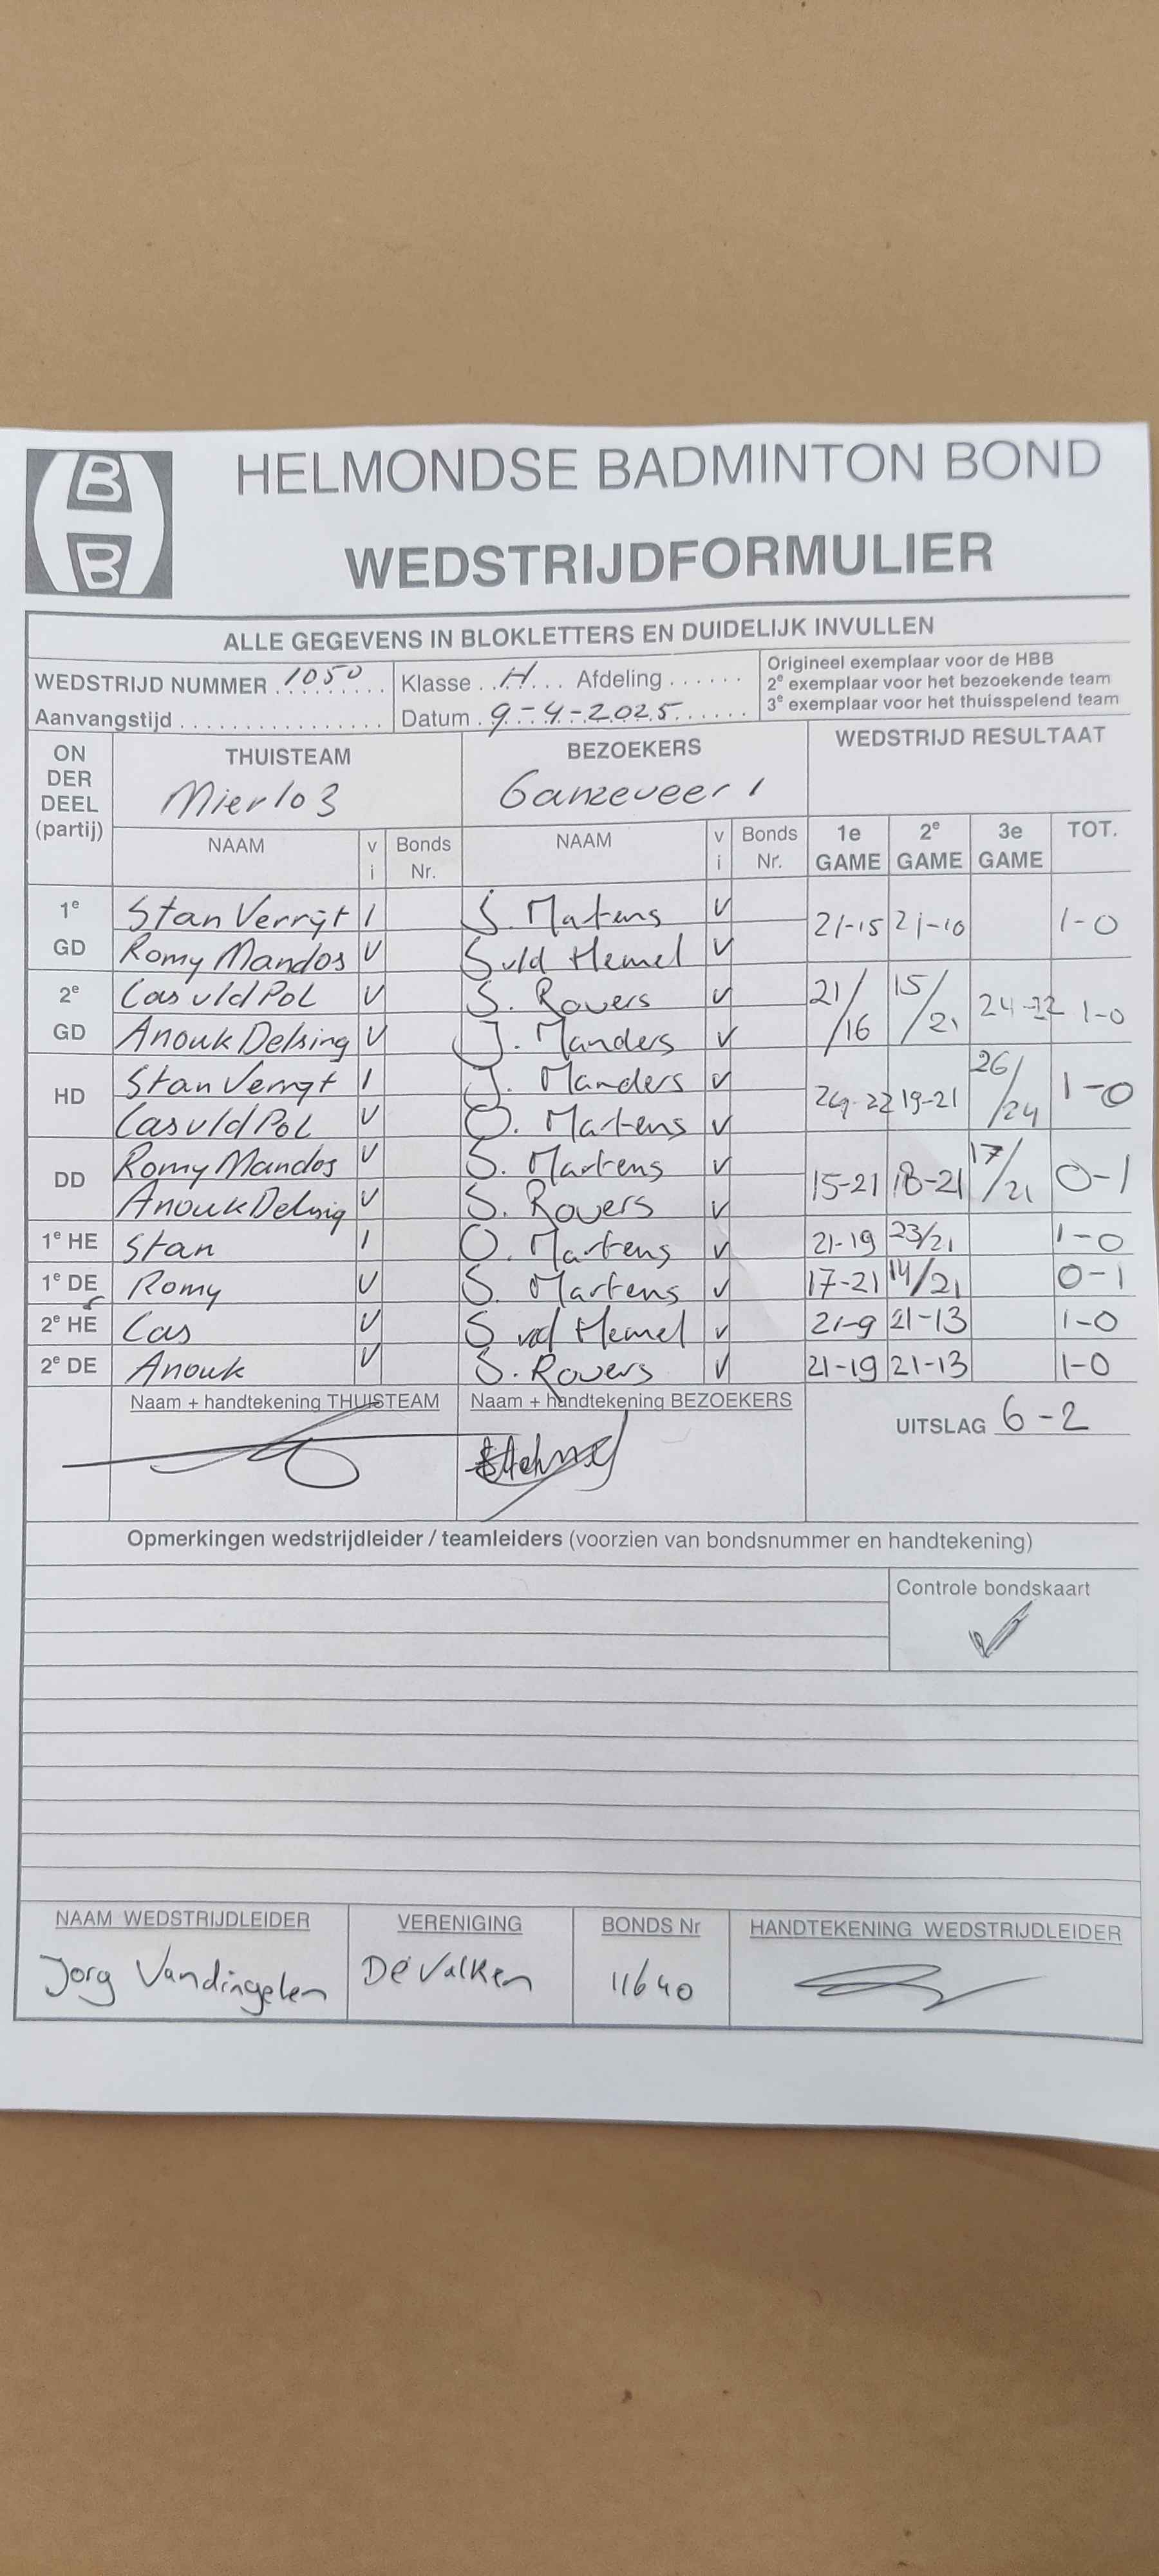 B
B
HELMONDSE BADMINTON BOND
WEDSTRIJDFORMULIER
ALLE GEGEVENS IN BLOKLETTERS EN DUIDELIJK INVULLEN
WEDSTRIJD NUMMER 1050 Klasse H Afdeling
Aanvangstijd Datum 9-4-2025
Origineel exemplaar voor de HBB
2e exemplaar voor het bezoekende team
3e exemplaar voor het thuisspelend team
ON DER DEEL (partij) THUISTEAM BEZOEKERS WEDSTRIJD RESULTAAT
Mierlo 3 Ganzeveer 1
NAAM v i Bonds Nr. NAAM v i Bonds Nr. 1e GAME 2e GAME 3e GAME TOT.
1e GD Stan Verrijt I S. Matens V 21-15 21-10 1-0
Romy Mandos V S vld Hemel V
2e GD Cas vld Pol V S. Rovers V 21/16 15/21 24-22 1-0
Anouk Delsing V J. Manders V
HD Stan Verrijt I J. Manders V 24-22 19-21 26/24 1-0
Cas vld Pol V O. Martens V
DD Romy Mandos V S. Martens V 15-21 18-21 17/21 0-1
Anouk Delsing V S. Rovers V
1e HE Stan I O. Martens V 21-19 23/21 1-0
1e DE Romy V S. Martens V 17-21 14/21 0-1
2e HE Cas V S vod Hemel V 21-9 21-13 1-0
2e DE Anouk V S. Rovers V 21-19 21-13 1-0
Naam + handtekening THUISTEAM Naam + handtekening BEZOEKERS
UITSLAG 6-2
Opmerkingen wedstrijdleider / teamleiders (voorzien van bondsnummer en handtekening)
Controle bondskaart
NAAM WEDSTRIJDLEIDER VERENIGING BONDS Nr HANDTEKENING WEDSTRIJDLEIDER
Jorg Vandingelen De Valken 11640